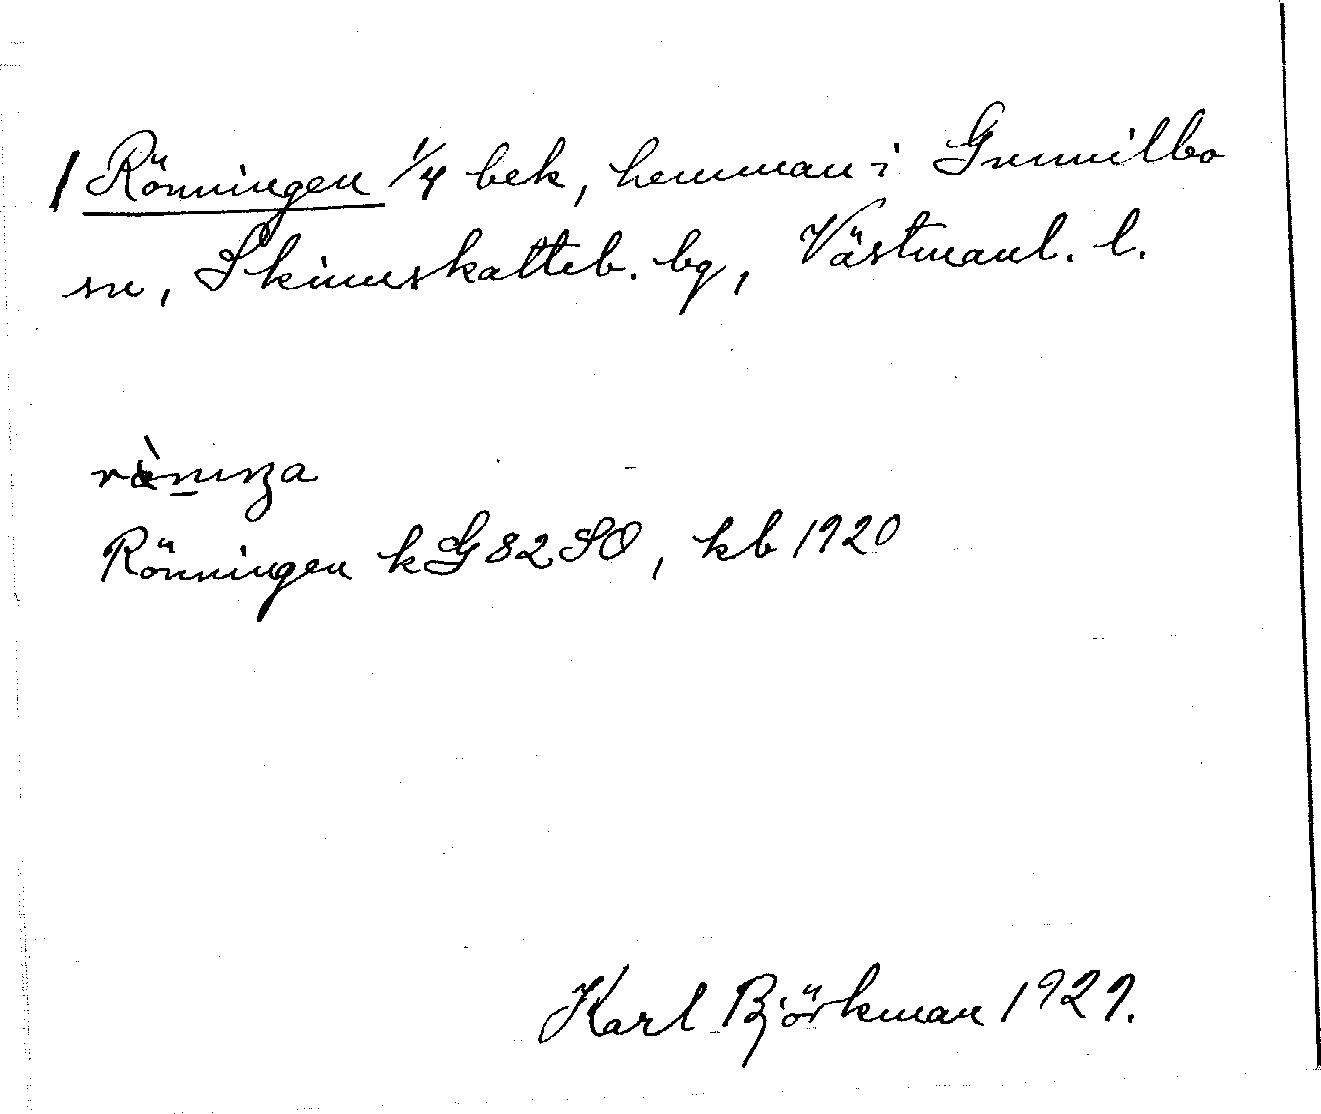 1 Rönningen 1/4 bek, hemman i Gunnilbo
sn, Skinnskatteb. bg, Västmanl. l.
Rönningen kG 82 SO, kb 1920
Karl Björkman 1929.